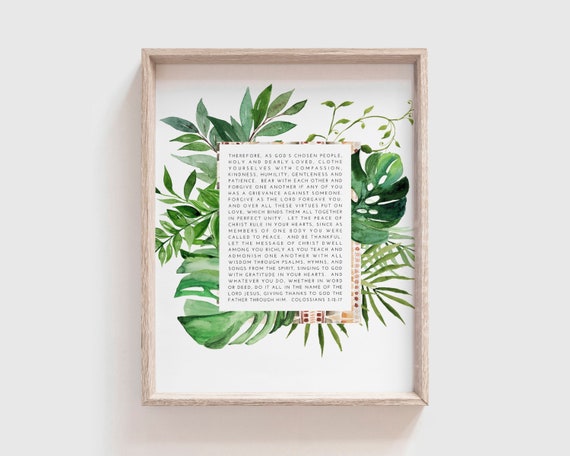 THEREFORE, AS GOD'S CHOSEN PEOPLE,
HOLY AND DEARLY LOVED, CLOTHE
YOURSELVES WITH COMPASSION,
KINDNESS, HUMILITY, GENTLENESS AND
PATIENCE. BEAR WITH EACH OTHER AND
FORGIVE ONE ANOTHER IF ANY OF YOU
HAS A GRIEVANCE AGAINST SOMEONE.
FORGIVE AS THE LORD FORGAVE YOU.
AND OVER ALL THESE VIRTUES PUT ON
LOVE, WHICH BINDS THEM ALL TOGETHER
IN PERFECT UNITY. LET THE PEACE OF
CHRIST RULE IN YOUR HEARTS, SINCE AS
MEMBERS OF ONE BODY YOU WERE
CALLED TO PEACE. AND BE THANKFUL.
LET THE MESSAGE OF CHRIST DWELL
AMONG YOU RICHLY AS YOU TEACH AND
ADMONISH ONE ANOTHER WITH ALL
WISDOM THROUGH PSALMS, HYMNS, AND
SONGS FROM THE SPIRIT, SINGING TO GOD
WITH GRATITUDE IN YOUR HEARTS. AND
WHATEVER YOU DO, WHETHER IN WORD
OR DEED, DO IT ALL IN THE NAME OF THE
LORD JESUS, GIVING THANKS TO GOD THE
FATHER THROUGH HIM. COLOSSIANS 3:12-17